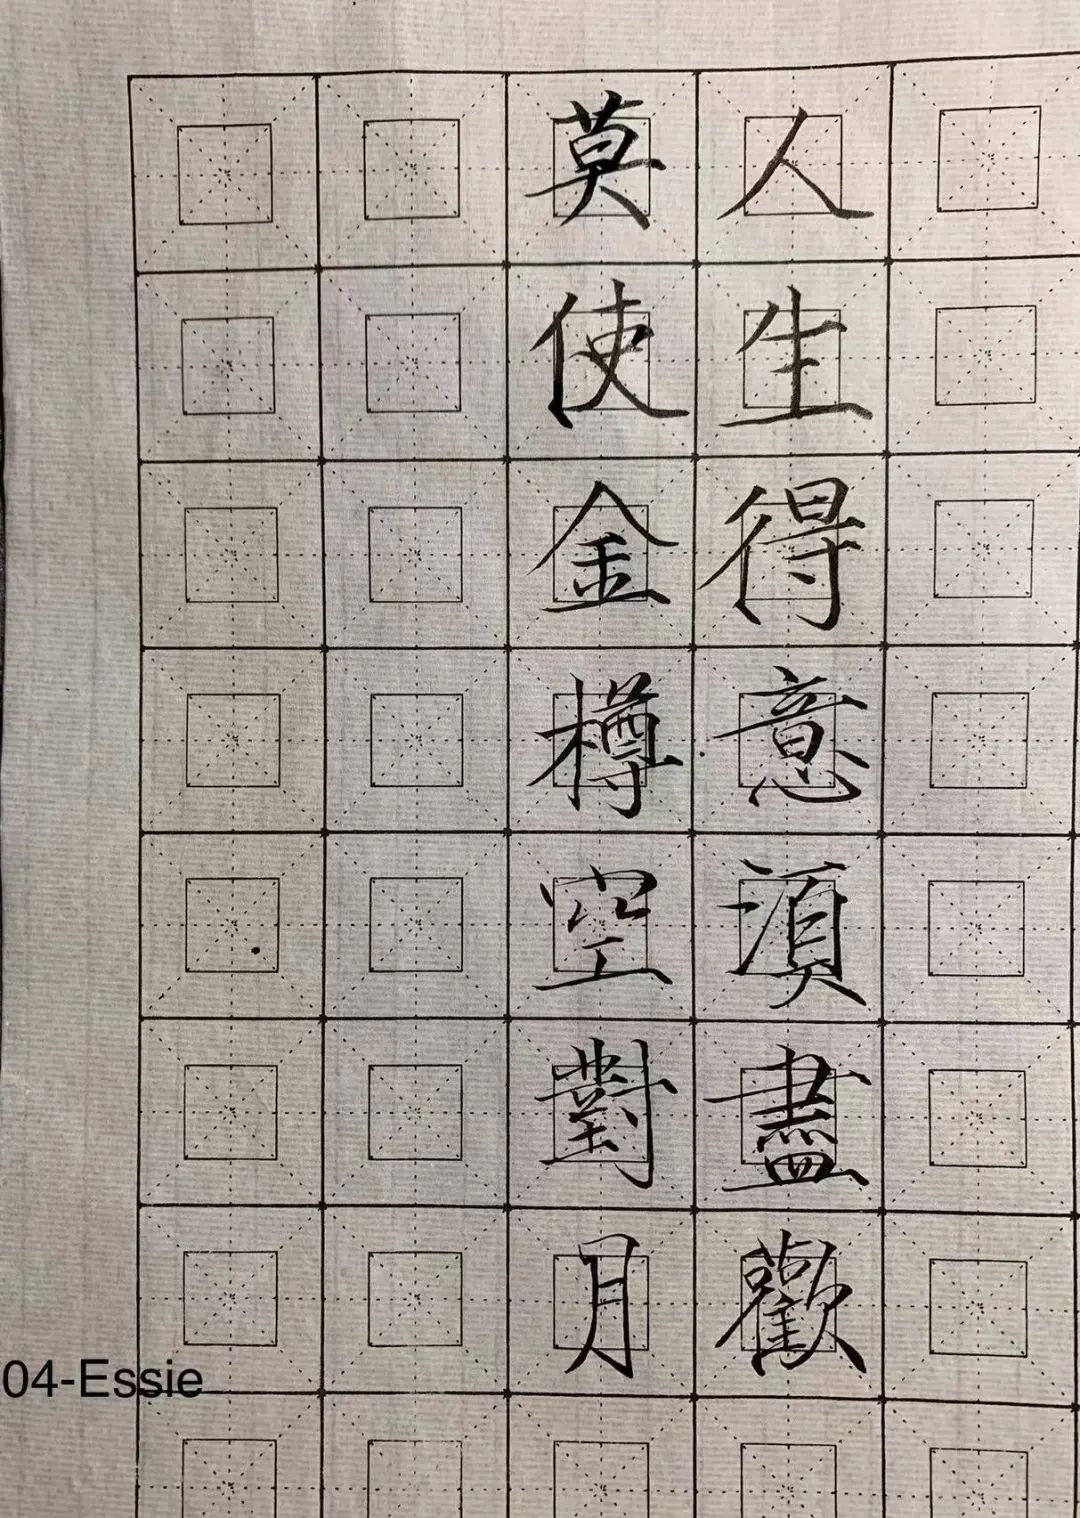 人生得意須盡歡
莫使金樽空對月
04-Essie